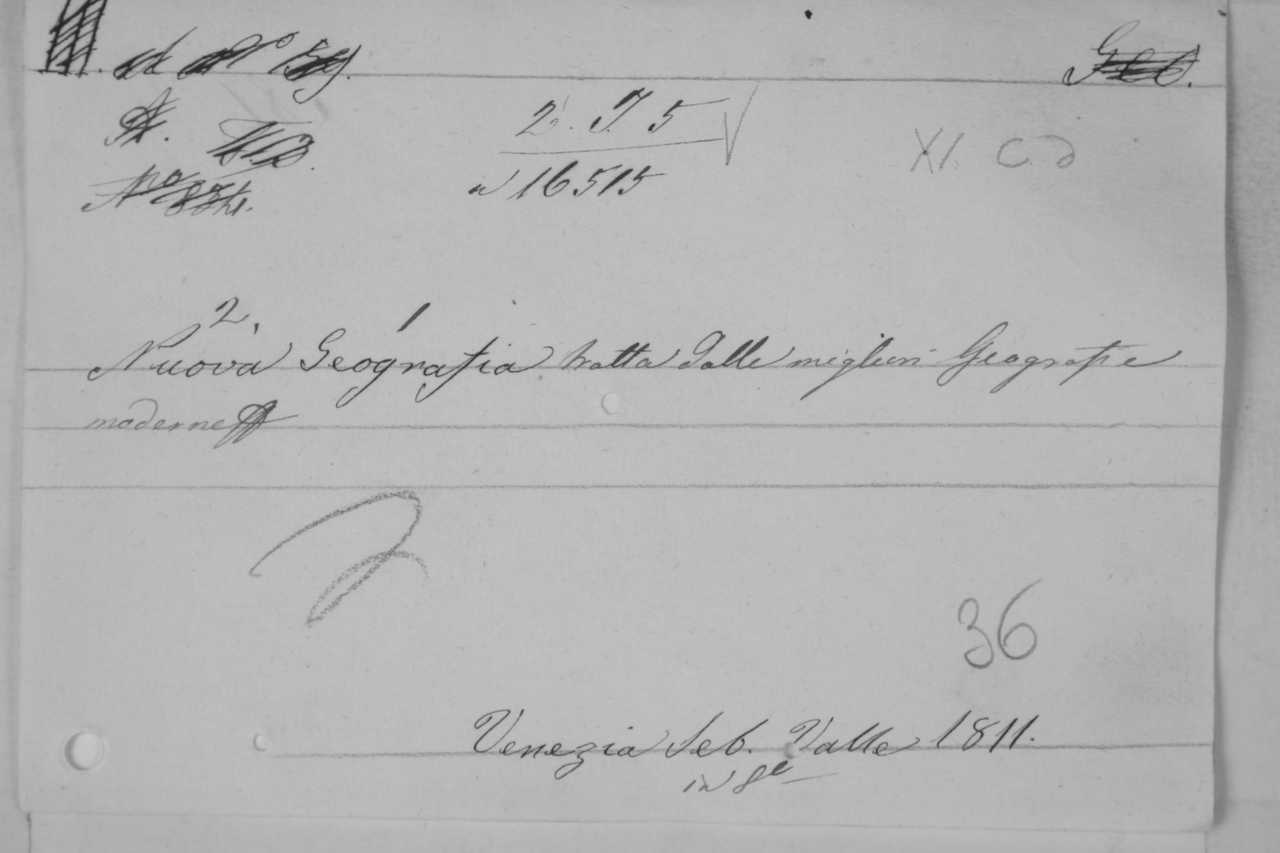 2. J. 5
XI. C. d
n 16515
2. 1
Nuova Geografia tratta dalle migliori Geografie
moderne
36
Venezia Seb. Valle 1811.
in 8e